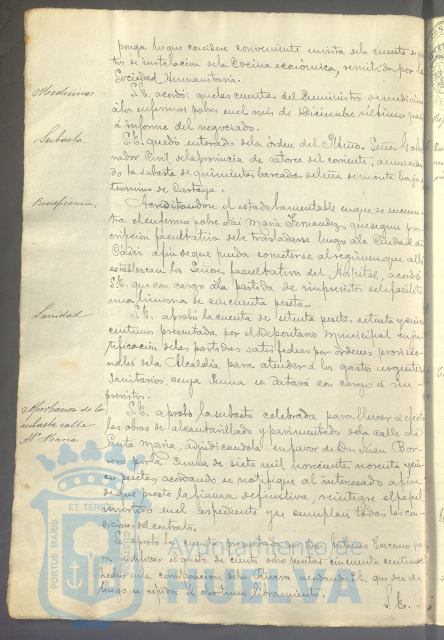 ponga lo que considere conveniente en vista de la cuenta de gas-
tos de instalacion de la Cocina económica, remitida por la
Sociedad Humanitaria.
Medicinas
S.E. acordó: que las cuentas del suministro de medicinas
á los enfermos pobres en el més de Diciembre último pasen
á informe del negociado.
Subasta
S.E. quedó enterado de la órden del Iltmo. Señor Gober-
nador Civil de la provincia de catorce del corriente, anuncian-
do la subasta de quinientas barcadas de leña de monte bajo
término de Cartaya.
Beneficencia
Acreditandose el estado lamentable en que se encuen-
tra el enfermo pobre José María Fernandez, que segun pres-
cripción facultativa debe trasladarse luego á la Ciudad de
Cádiz á fin de que pueda someterse al regimen que allí
establezcan los Señores facultativos del Hospital, acordó
S.E. que con cargo á la partida de imprevistos se le facilite
una limosna de cincuenta pesetas.
Sanidad
S.E. aprobó la cuenta de setenta pesetas, setenta y cinco
centimos presentada por el Depositario Municipal en jus-
tificación de las partidas satisfechas por órdenes provisio-
nales de la Alcaldía para atender á los gastos urgentes
sanitarios, cuya suma se datará con cargo á im-
previstos.
Aprobacion de la
subasta calle
Sta. María
S.E. aprobó la subasta celebrada para llevar á efecto
las obras de alcantarillado y pavimentado de la calle de
Santa María, adjudicandola en favor de Don Juan Bor-
rero por la suma de siete mil novecientas noventa y cin-
co pesetas, acordando se notifique al interesado a fin
de que preste la fianza definitiva, reintegre el papel
invertido en el expediente y se cumplan todas las con-
diciones del contrato.
S.E. aprobó la cuenta presentada por Don Julian
para justificar el gasto de ciento seis pesetas cincuenta centimos
hecho en la de la acordando S.E. que des de
luego se expida el oportuno libramiento.
S.E.
PORTUS MARIS
ET TERRÆ
Ayuntamiento de
HUELVA